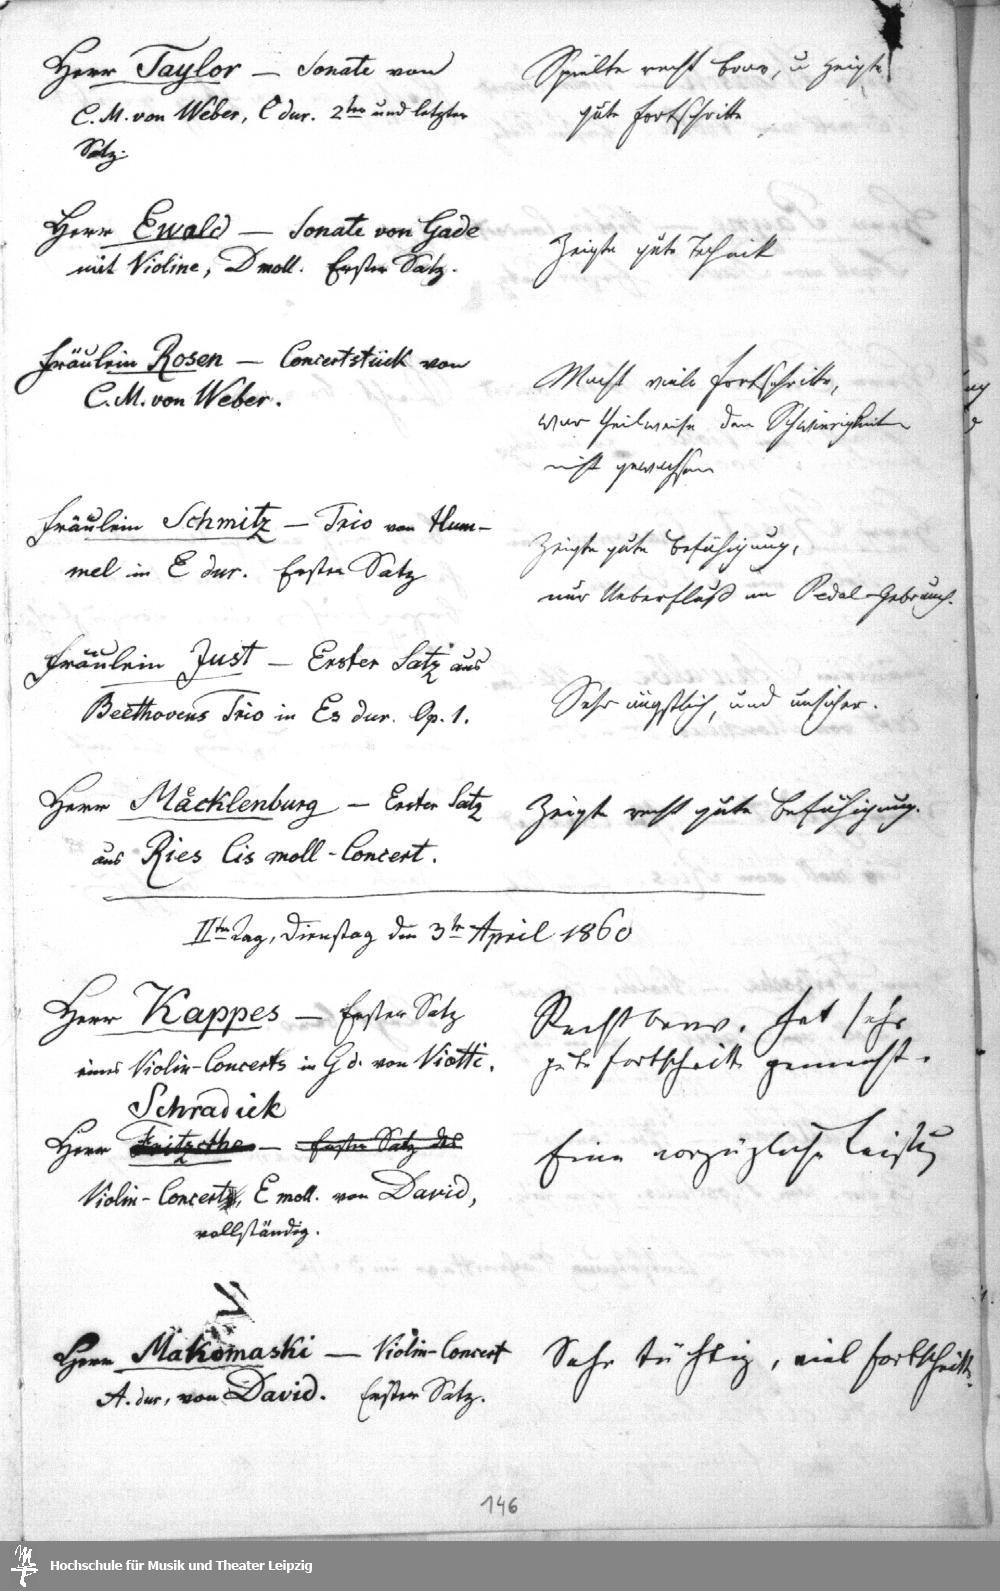 Herr Taylor — Sonate von
C. M. von Weber, C dur. 2ter und letzter
Satz.
Spielte recht brav, u zeigte
gute Fortschritte
Herr Ewald — Sonate von Gade
mit Violine, D moll. Erster Satz.
Zeigte gute Technik
Fräulein Rosen — Concertstück von
C. M. von Weber.
Macht viele Fortschritte,
war theilweise den Schwierigkeiten
nicht gewachsen
Fräulein Schmitz — Trio von Hum-
mel in E dur. Erster Satz
Zeigte gute Befähigung,
nur Ueberfluß an Pedal-Gebrauch.
Fräulein Just — Erster Satz aus
Beethovens Trio in Es dur. Op. 1.
Sehr ängstlich, und unsicher.
Herr Mäcklenburg — Erster Satz
aus Ries Cis moll-Concert.
Zeigte recht gute Befähigung.
IIter Tag, Dienstag den 3te April 1860
Herr Kappes — Erster Satz
eines Violin-Concerts in G d. von Viotti.
Recht brav. Hat sehr
gute Fortschritte gemacht.
Schradiek
Herr Fritzsche — Erster Satz des
Violin-Concerts, E moll. von David,
vollständig.
Eine vorzügliche Leistung
Herr Makomaski — Violin-Concert
A. dur, von David. Erster Satz.
Sehr tüchtig, viel Fortschritte.
146
Hochschule für Musik und Theater Leipzig